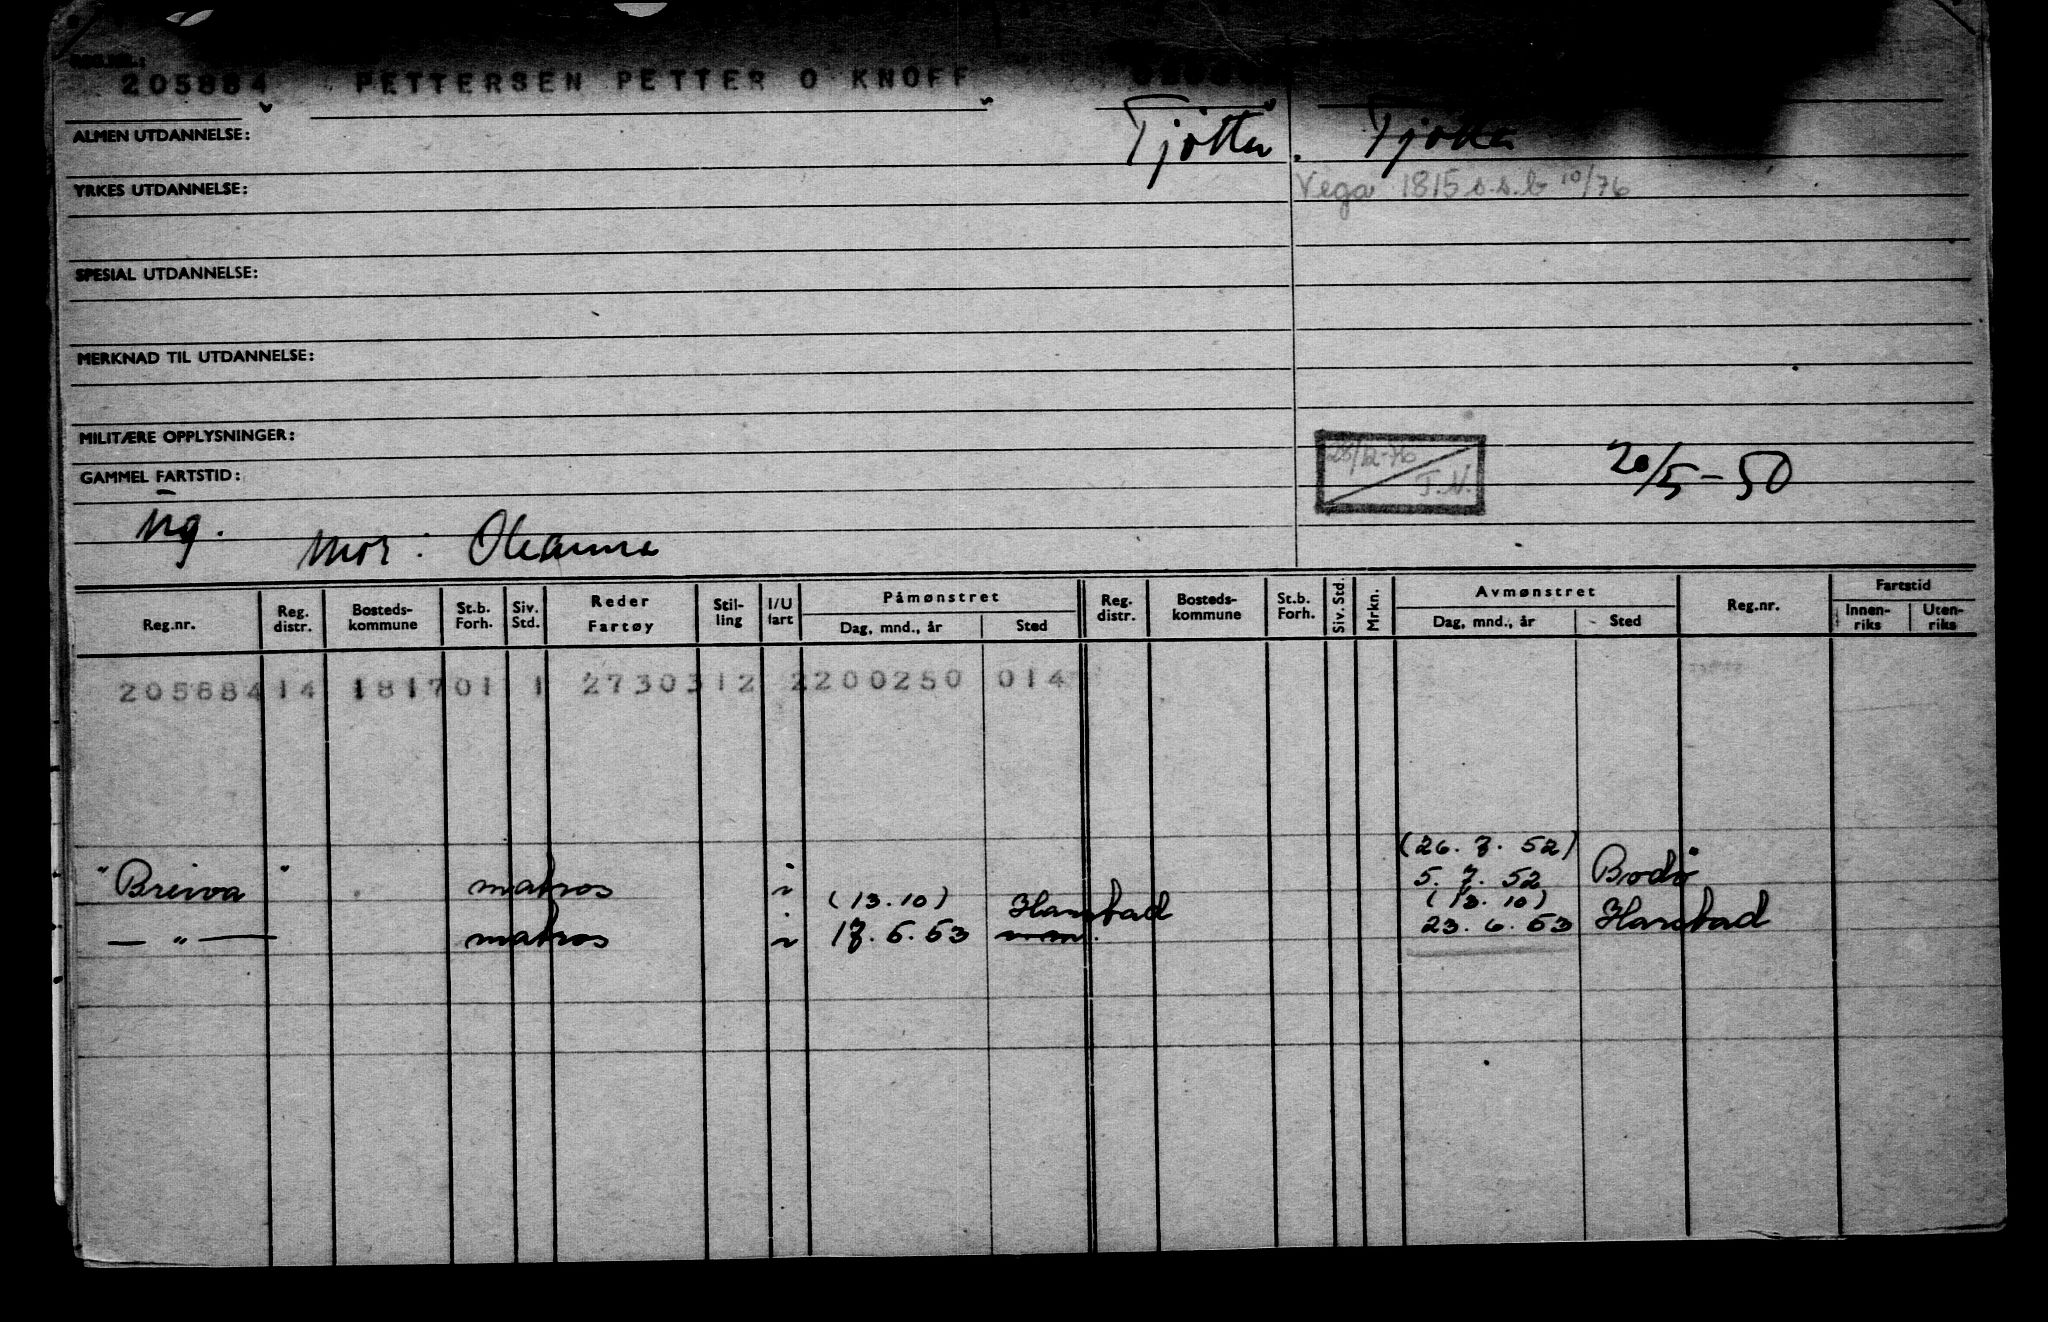 205884 PETTERSEN PETTER O KNOFF
Tjötta. Tjøtta
ALMEN UTDANNELSE:
YRKES UTDANNELSE:
Vega 1815 s.s.b 10/76
SPESIAL UTDANNELSE:
MERKNAD TIL UTDANNELSE:
MILITÆRE OPPLYSNINGER:
GAMMEL FARTSTID:
28/12-76
T.N.
20/5-50
ug.
Mor: Oleanna
Reg.nr. Reg. distr. Bosteds-kommune St.b. Forh. Siv. Std. Reder Fartøy Stil-ling I/U fart Påmønstret Dag, mnd., år Sted Reg. distr. Bosteds-kommune St.b. Forh. Siv. Std. Mrkn. Avmønstret Dag, mnd., år Sted Reg.nr. Fartstid Innen-riks Uten-riks
205884 14 1817 01 1 2730312 2200250 014
(26.7.52)
"Breiva" matros i 5.7.52 Bodö
(13.10) Harstad (13.10)
— " — matros i 17.6.53 23.6.53 Harstad